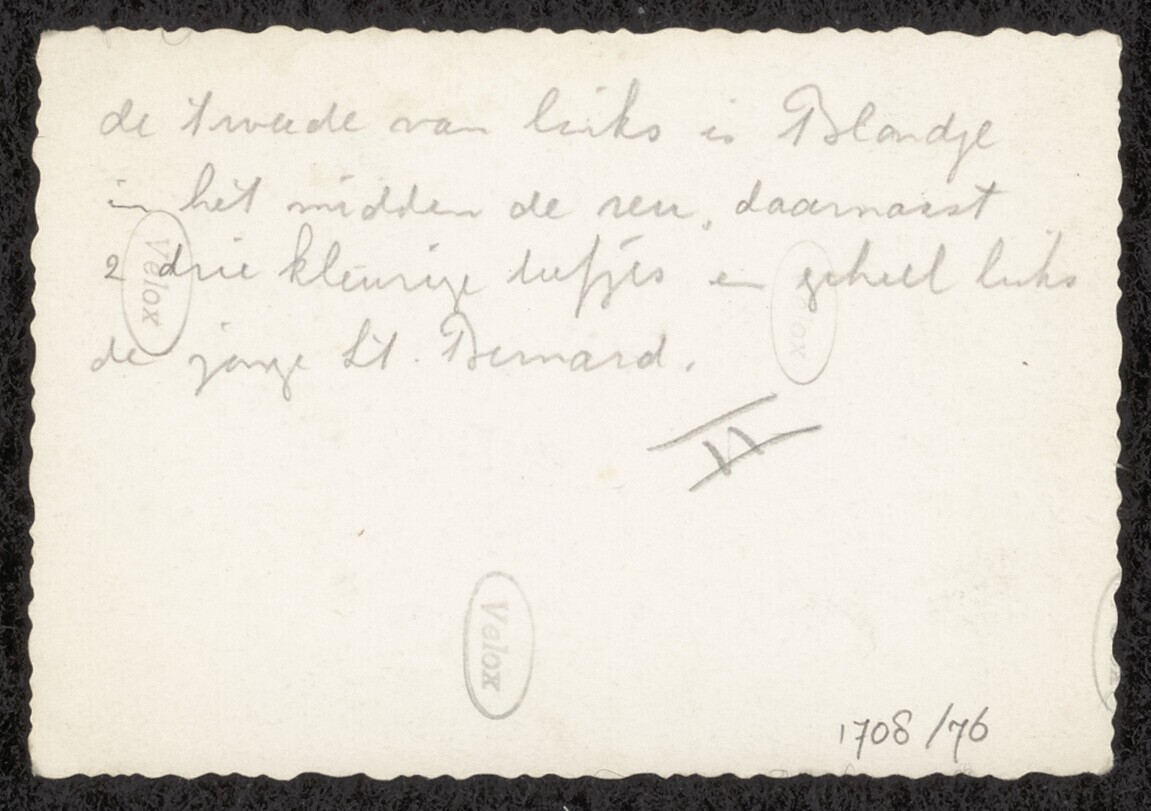 de tweede van links is Blondje
in het midden de reu, daarnaast
2 drie kleurige teefjes en geheel links
de jonge St. Bernard.
VI
Velox
Velox
1708/76